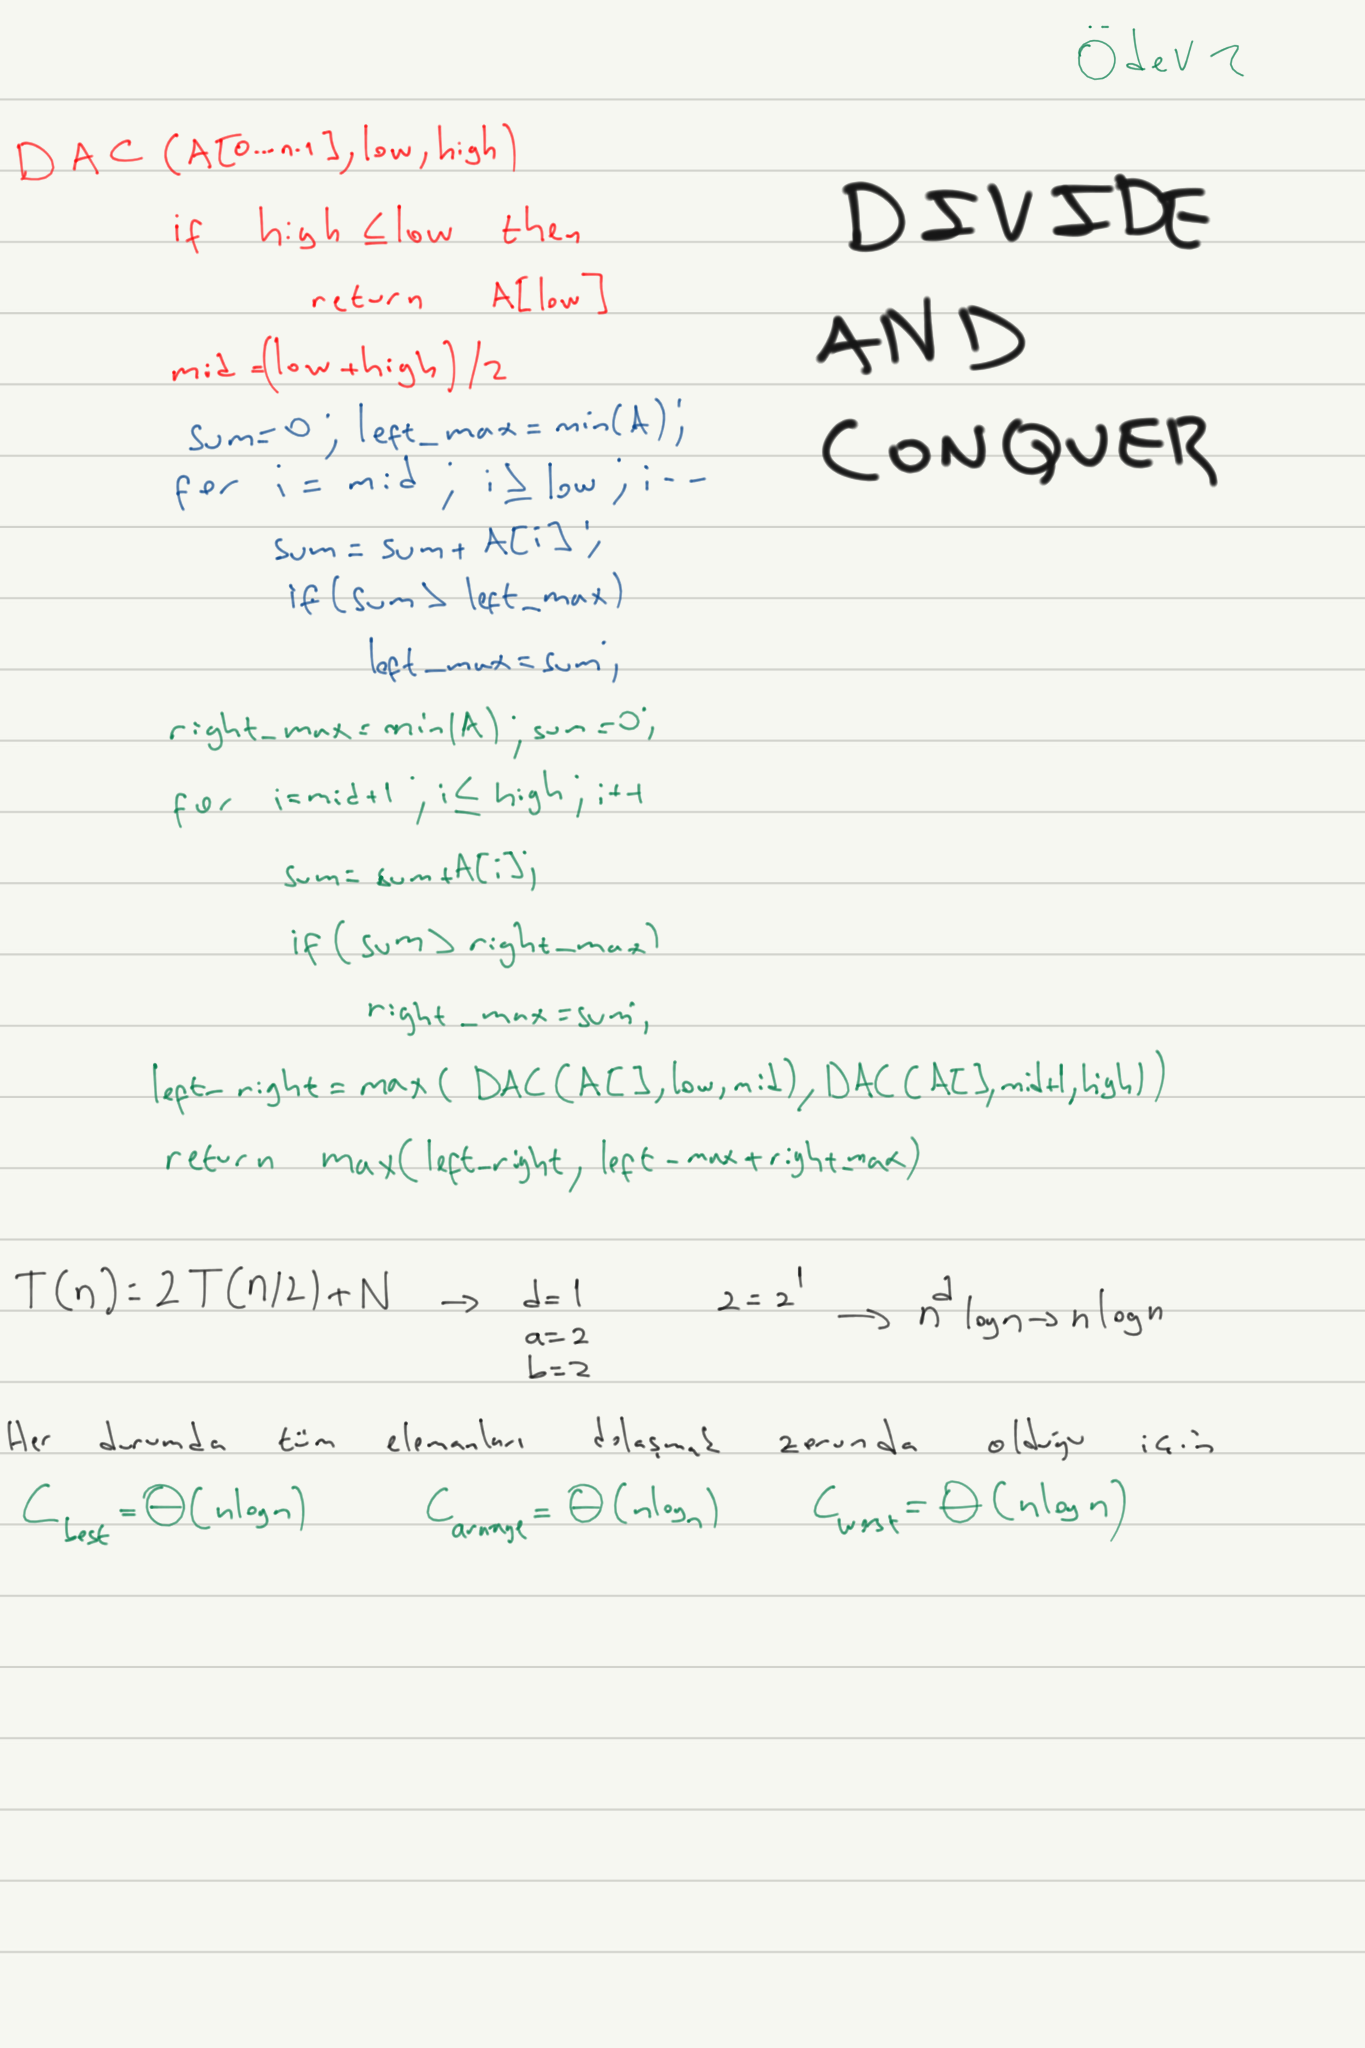 Ödev 2
DAC (A[0...n-1], low, high)
DIVIDE
AND
CONQUER
if high ≤ low then
return A[low]
mid = (low + high) / 2
sum = 0; left_max = min(A);
for i = mid ; i ≥ low ; i--
sum = sum + A[i];
if (sum > left_max)
left_max = sum;
right_max = min(A); sum = 0;
for i = mid+1 ; i ≤ high ; i++
sum = sum + A[i];
if (sum > right_max)
right_max = sum;
left_right = max( DAC(A[], low, mid), DAC(A[], mid+1, high))
return max(left_right, left_max + right_max)
T(n) = 2T(n/2) + N → d=1 2 = 2^1 → n^d logn → n logn
a=2
b=2
Her durumda tüm elemanları dolaşmak zorunda olduğu için
C_best = Θ(nlogn) C_average = Θ(nlogn) C_worst = Θ(nlogn)